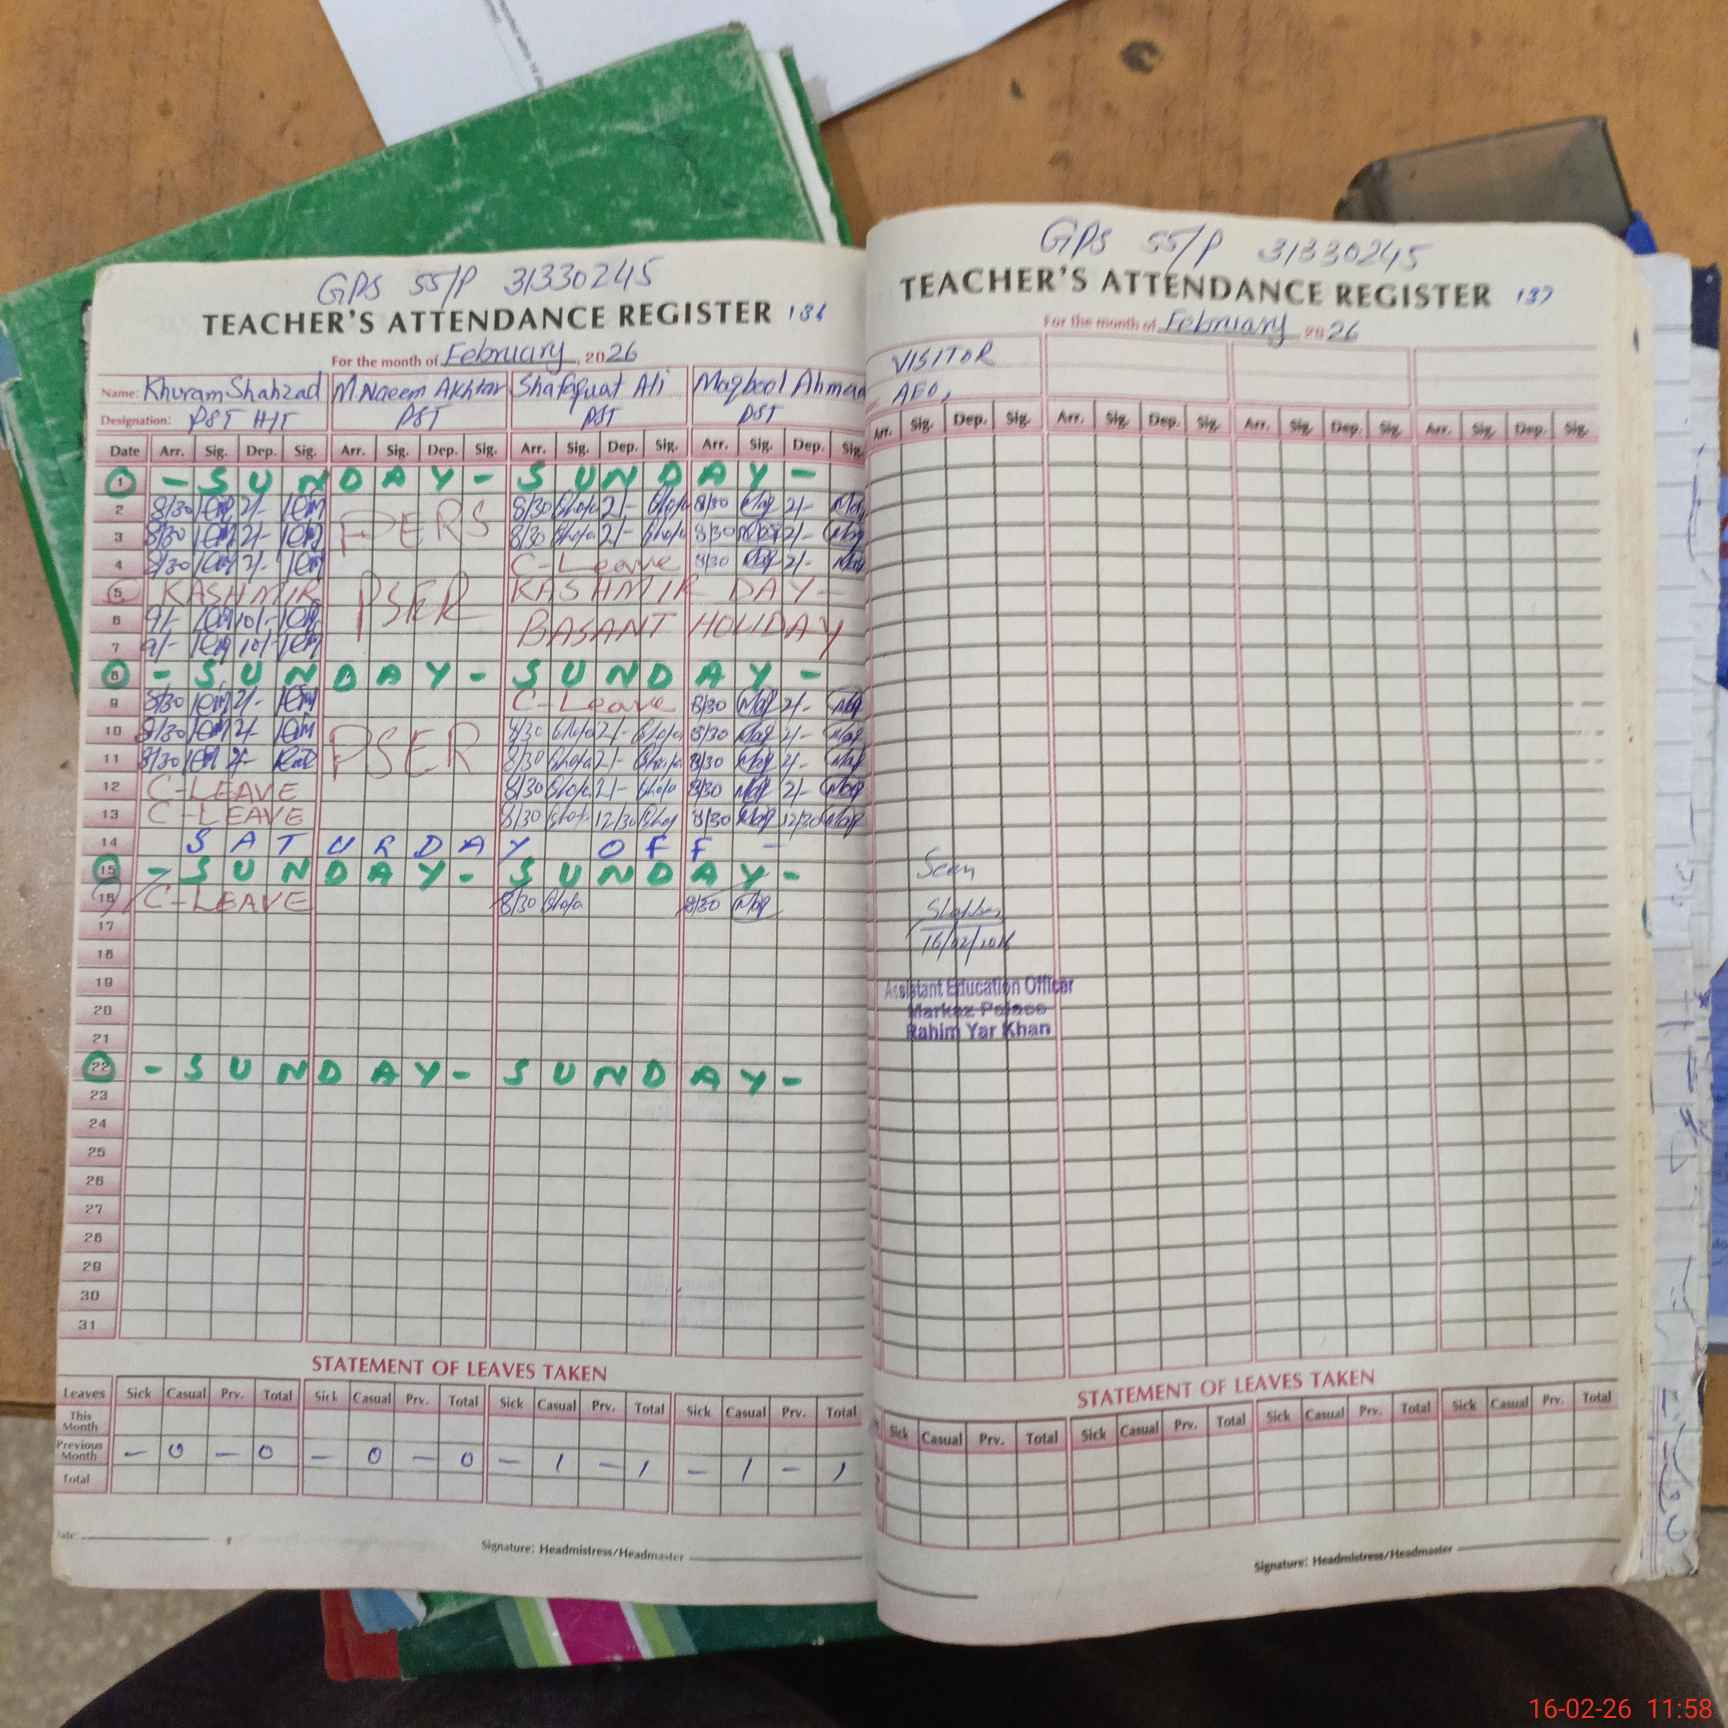 GPS 55/P 31330245
TEACHER'S ATTENDANCE REGISTER 136
For the month of February, 2026
Name: Khuram Shahzad M Naeem Akhtar Shafaquat Ali Maqbool Ahmad
Designation: PST H/T PST PST PST
Date Arr. Sig. Dep. Sig. Arr. Sig. Dep. Sig. Arr. Sig. Dep. Sig. Arr. Sig. Dep. Sig.
1 - SUNDAY - SUNDAY -
2 8/30 2/- PERS 8/30 2/- 8/30 2/-
3 8/30 2/- 8/30 2/- 8/30 2/-
4 8/30 2/- C-Leave 8/30 2/-
5 KASHMIR PSER KASHMIR DAY-
6 9/- 10/- BASANT HOLIDAY
7 9/- 10/-
8 - SUNDAY - SUNDAY -
9 8/30 2/- C-Leave 8/30 2/-
10 8/30 2/- PSER 8/30 2/- 8/30 2/-
11 8/30 2/- 8/30 2/- 8/30 2/-
12 C-LEAVE 8/30 2/- 8/30 2/-
13 C-LEAVE 8/30 12/30 8/30 12/30
14 SATURDAY OFF -
15 - SUNDAY - SUNDAY -
16 C-LEAVE 8/30 8/30
17
18
19
20
21
22 - SUNDAY - SUNDAY -
23
24
25
26
27
28
29
30
31
STATEMENT OF LEAVES TAKEN
Leaves Sick Casual Prv. Total Sick Casual Prv. Total Sick Casual Prv. Total Sick Casual Prv. Total
This Month
Previous Month - 0 - 0 - 0 - 0 - 1 - 1 - 1 - 1
Total
Date:
Signature: Headmistress/Headmaster
GPS 55/P 31330245
TEACHER'S ATTENDANCE REGISTER 137
For the month of February 2026
VISITOR
AEO,
Arr. Sig. Dep. Sig. Arr. Sig. Dep. Sig. Arr. Sig. Dep. Sig. Arr. Sig. Dep. Sig.
Seen
16/02/2026
Assistant Education Officer
Markaz Palace
Rahim Yar Khan
STATEMENT OF LEAVES TAKEN
Sick Casual Prv. Total Sick Casual Prv. Total Sick Casual Prv. Total Sick Casual Prv. Total
Signature: Headmistress/Headmaster
16-02-26 11:58